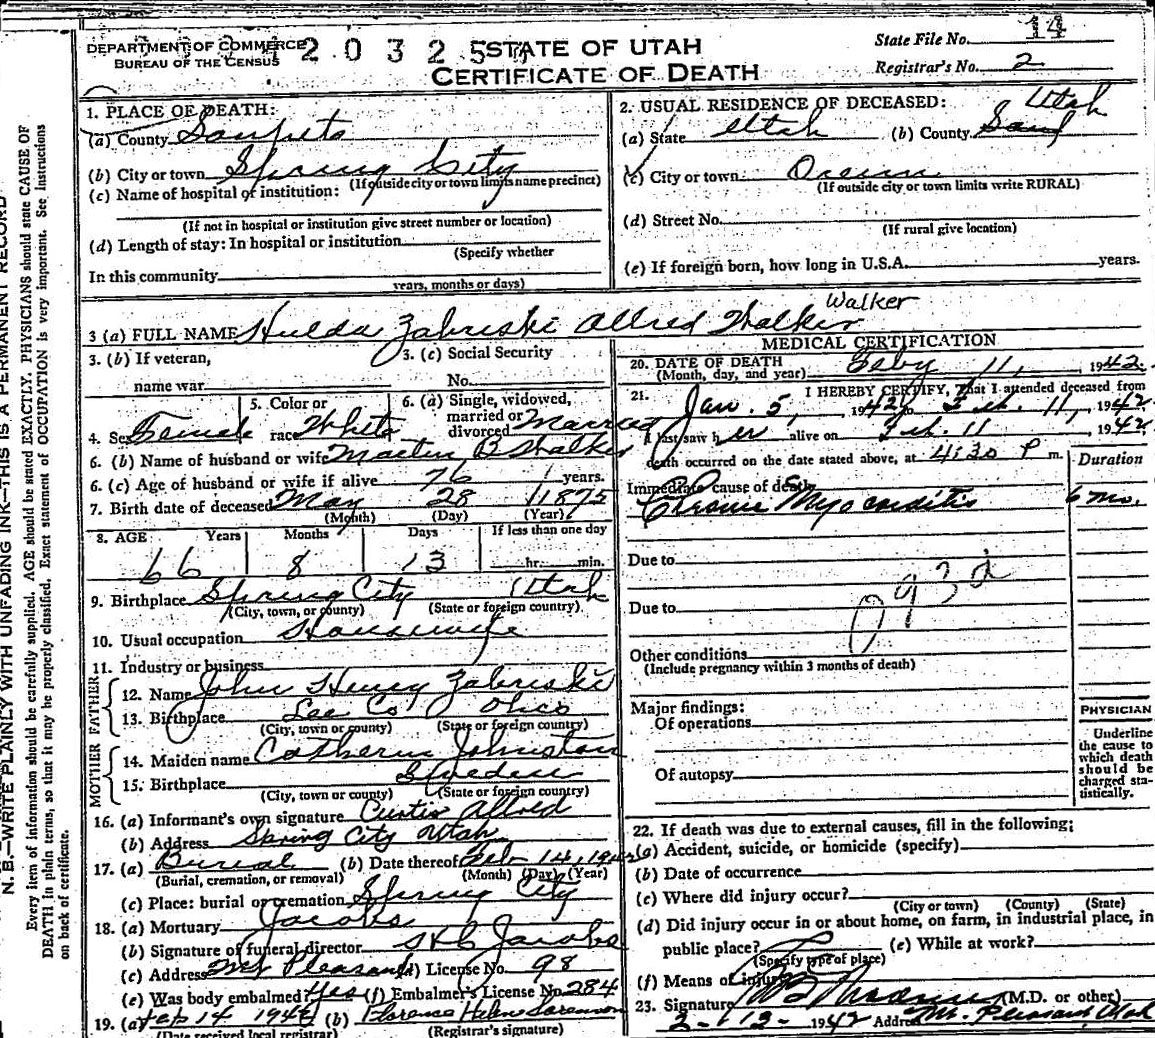 DEPARTMENT OF COMMERCE
BUREAU OF THE CENSUS
2 0 3 2 5
STATE OF UTAH
CERTIFICATE OF DEATH
State File No. 14
Registrar's No. 2
1. PLACE OF DEATH:
(a) County Sanpete
(b) City or town Spring City
(If outside city or town limits name precinct)
(c) Name of hospital or institution:
(If not in hospital or institution give street number or location)
(d) Length of stay: In hospital or institution
(Specify whether
In this community
years, months or days)
2. USUAL RESIDENCE OF DECEASED:
(a) State Utah (b) County Utah
(c) City or town Orem
(If outside city or town limits write RURAL)
(d) Street No.
(If rural give location)
(e) If foreign born, how long in U.S.A. years.
Walker
3 (a) FULL NAME Hulda Zabriski Allred Walker
3. (b) If veteran,
name war
3. (c) Social Security
No.
4. Sex Female
5. Color or
race White
6. (a) Single, widowed,
married or
divorced Married
6. (b) Name of husband or wife Martin B Walker
6. (c) Age of husband or wife if alive 76 years.
7. Birth date of deceased May 28 1875
(Month) (Day) (Year)
8. AGE Years Months Days If less than one day
66 8 13 hr. min.
9. Birthplace Spring City Utah
(City, town, or county) (State or foreign country)
10. Usual occupation Housewife
11. Industry or business
FATHER
12. Name John Henry Zabriski
13. Birthplace Lee Co Ohio
(City, town or county) (State or foreign country)
MOTHER
14. Maiden name Catherin Johnston
15. Birthplace Sweden
(City, town or county) (State or foreign country)
16. (a) Informant's own signature Curtis Allred
(b) Address Spring City Utah
17. (a) Burial (b) Date thereof Feb 14, 1942
(Burial, cremation, or removal) (Month) (Day) (Year)
(c) Place: burial or cremation Spring City
18. (a) Mortuary Jacobs
(b) Signature of funeral director Jacobs
(c) Address Mt Pleasant (d) License No. 98
(e) Was body embalmed? Yes (f) Embalmer's License No. 284
19. (a) Feb 14 1942 (b) Florence Helene Sorenson
(Date received local registrar) (Registrar's signature)
MEDICAL CERTIFICATION
20. DATE OF DEATH Feby 11, 1942
(Month, day, and year)
21. I HEREBY CERTIFY, That I attended deceased from
Jan. 5, 1942 to Feb. 11, 1942
I last saw her alive on Feb. 11 1942
death occurred on the date stated above, at 4:30 P m.
Duration
Immediate cause of death
Chronic Myocarditis 6 mo.
Due to
93d
Due to
Other conditions
(Include pregnancy within 3 months of death)
Major findings:
Of operations
Of autopsy
PHYSICIAN
Underline
the cause to
which death
should be
charged sta-
tistically.
22. If death was due to external causes, fill in the following:
(a) Accident, suicide, or homicide (specify)
(b) Date of occurrence
(c) Where did injury occur?
(City or town) (County) (State)
(d) Did injury occur in or about home, on farm, in industrial place, in
public place? (e) While at work?
(Specify type of place)
(f) Means of injury
23. Signature (M.D. or other)
2-12-1942 Address Mt. Pleasant, Utah
N. B.—WRITE PLAINLY WITH UNFADING INK—THIS IS A PERMANENT RECORD
Every item of information should be carefully supplied. AGE should be stated EXACTLY. PHYSICIANS should state CAUSE OF
DEATH in plain terms, so that it may be properly classified. Exact statement of OCCUPATION is very important. See Instructions
on back of certificate.